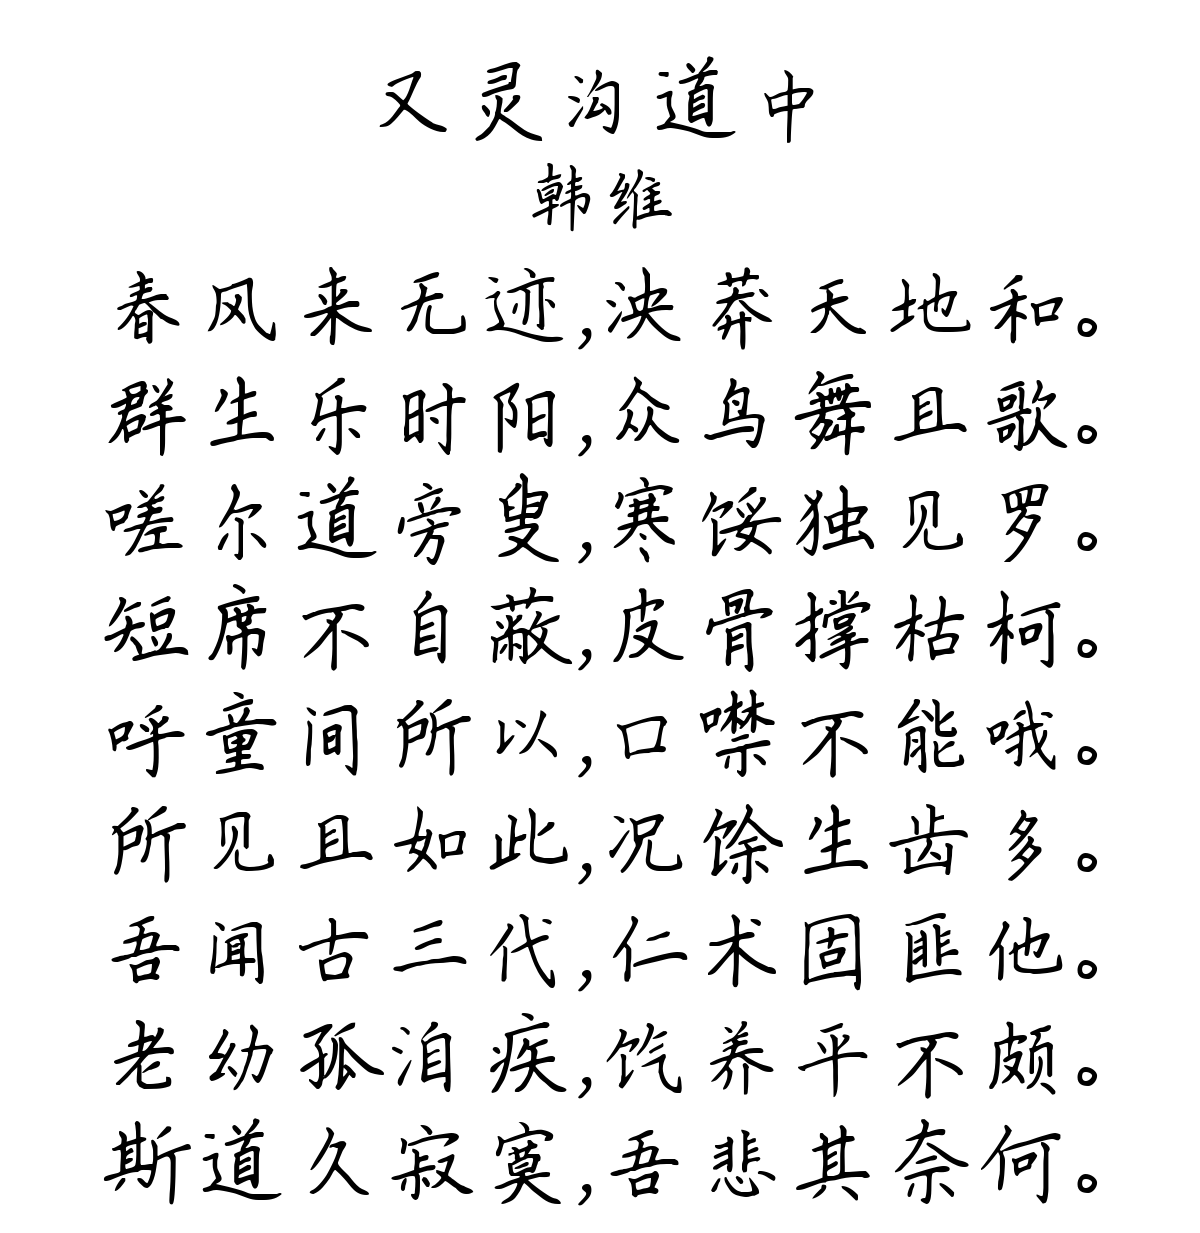 又灵沟道中
韩维
春风来无迹,泱莽天地和。
群生乐时阳,众鸟舞且歌。
嗟尔道旁叟,寒馁独见罗。
短席不自蔽,皮骨撑枯柯。
呼童间所以,口噤不能哦。
所见且如此,况馀生齿多。
吾闻古三代,仁术固匪他。
老幼孤洎疾,饩养平不颇。
斯道久寂寞,吾悲其奈何。